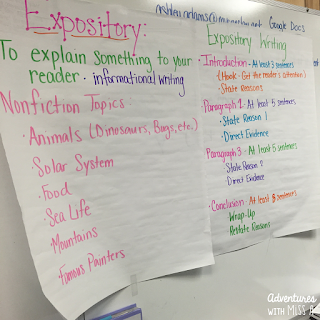 Google Docs
Expository:
To explain something to your
reader · informational writing
Nonfiction Topics:
· Animals (Dinosaurs, Bugs, etc.)
· Solar System
· Food
· Sea Life
· Mountains
· Famous Painters
Expository Writing
· Introduction - At least 3 sentences
(Hook - Get the reader's attention)
- State Reasons
Paragraph 1 - At least 5 sentences
· State Reason 1
· Direct Evidence
Paragraph 3 - At least 5 sentences
State Reason 2
Direct Evidence
· Conclusion - At least sentences
· Wrap-Up
· Restate Reasons
Adventures
WITH MISS A